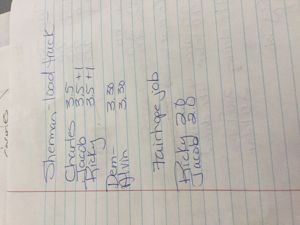 Sherman load truck
Charles 3.5
Jacob 3.5 +1
Ricky 3.5 +1
Dem 3.30
Alvin 3.30
Fairhope job
Ricky 2.0
Jacob 2.0